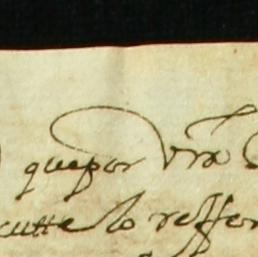 que por vra
cutte lo reffer